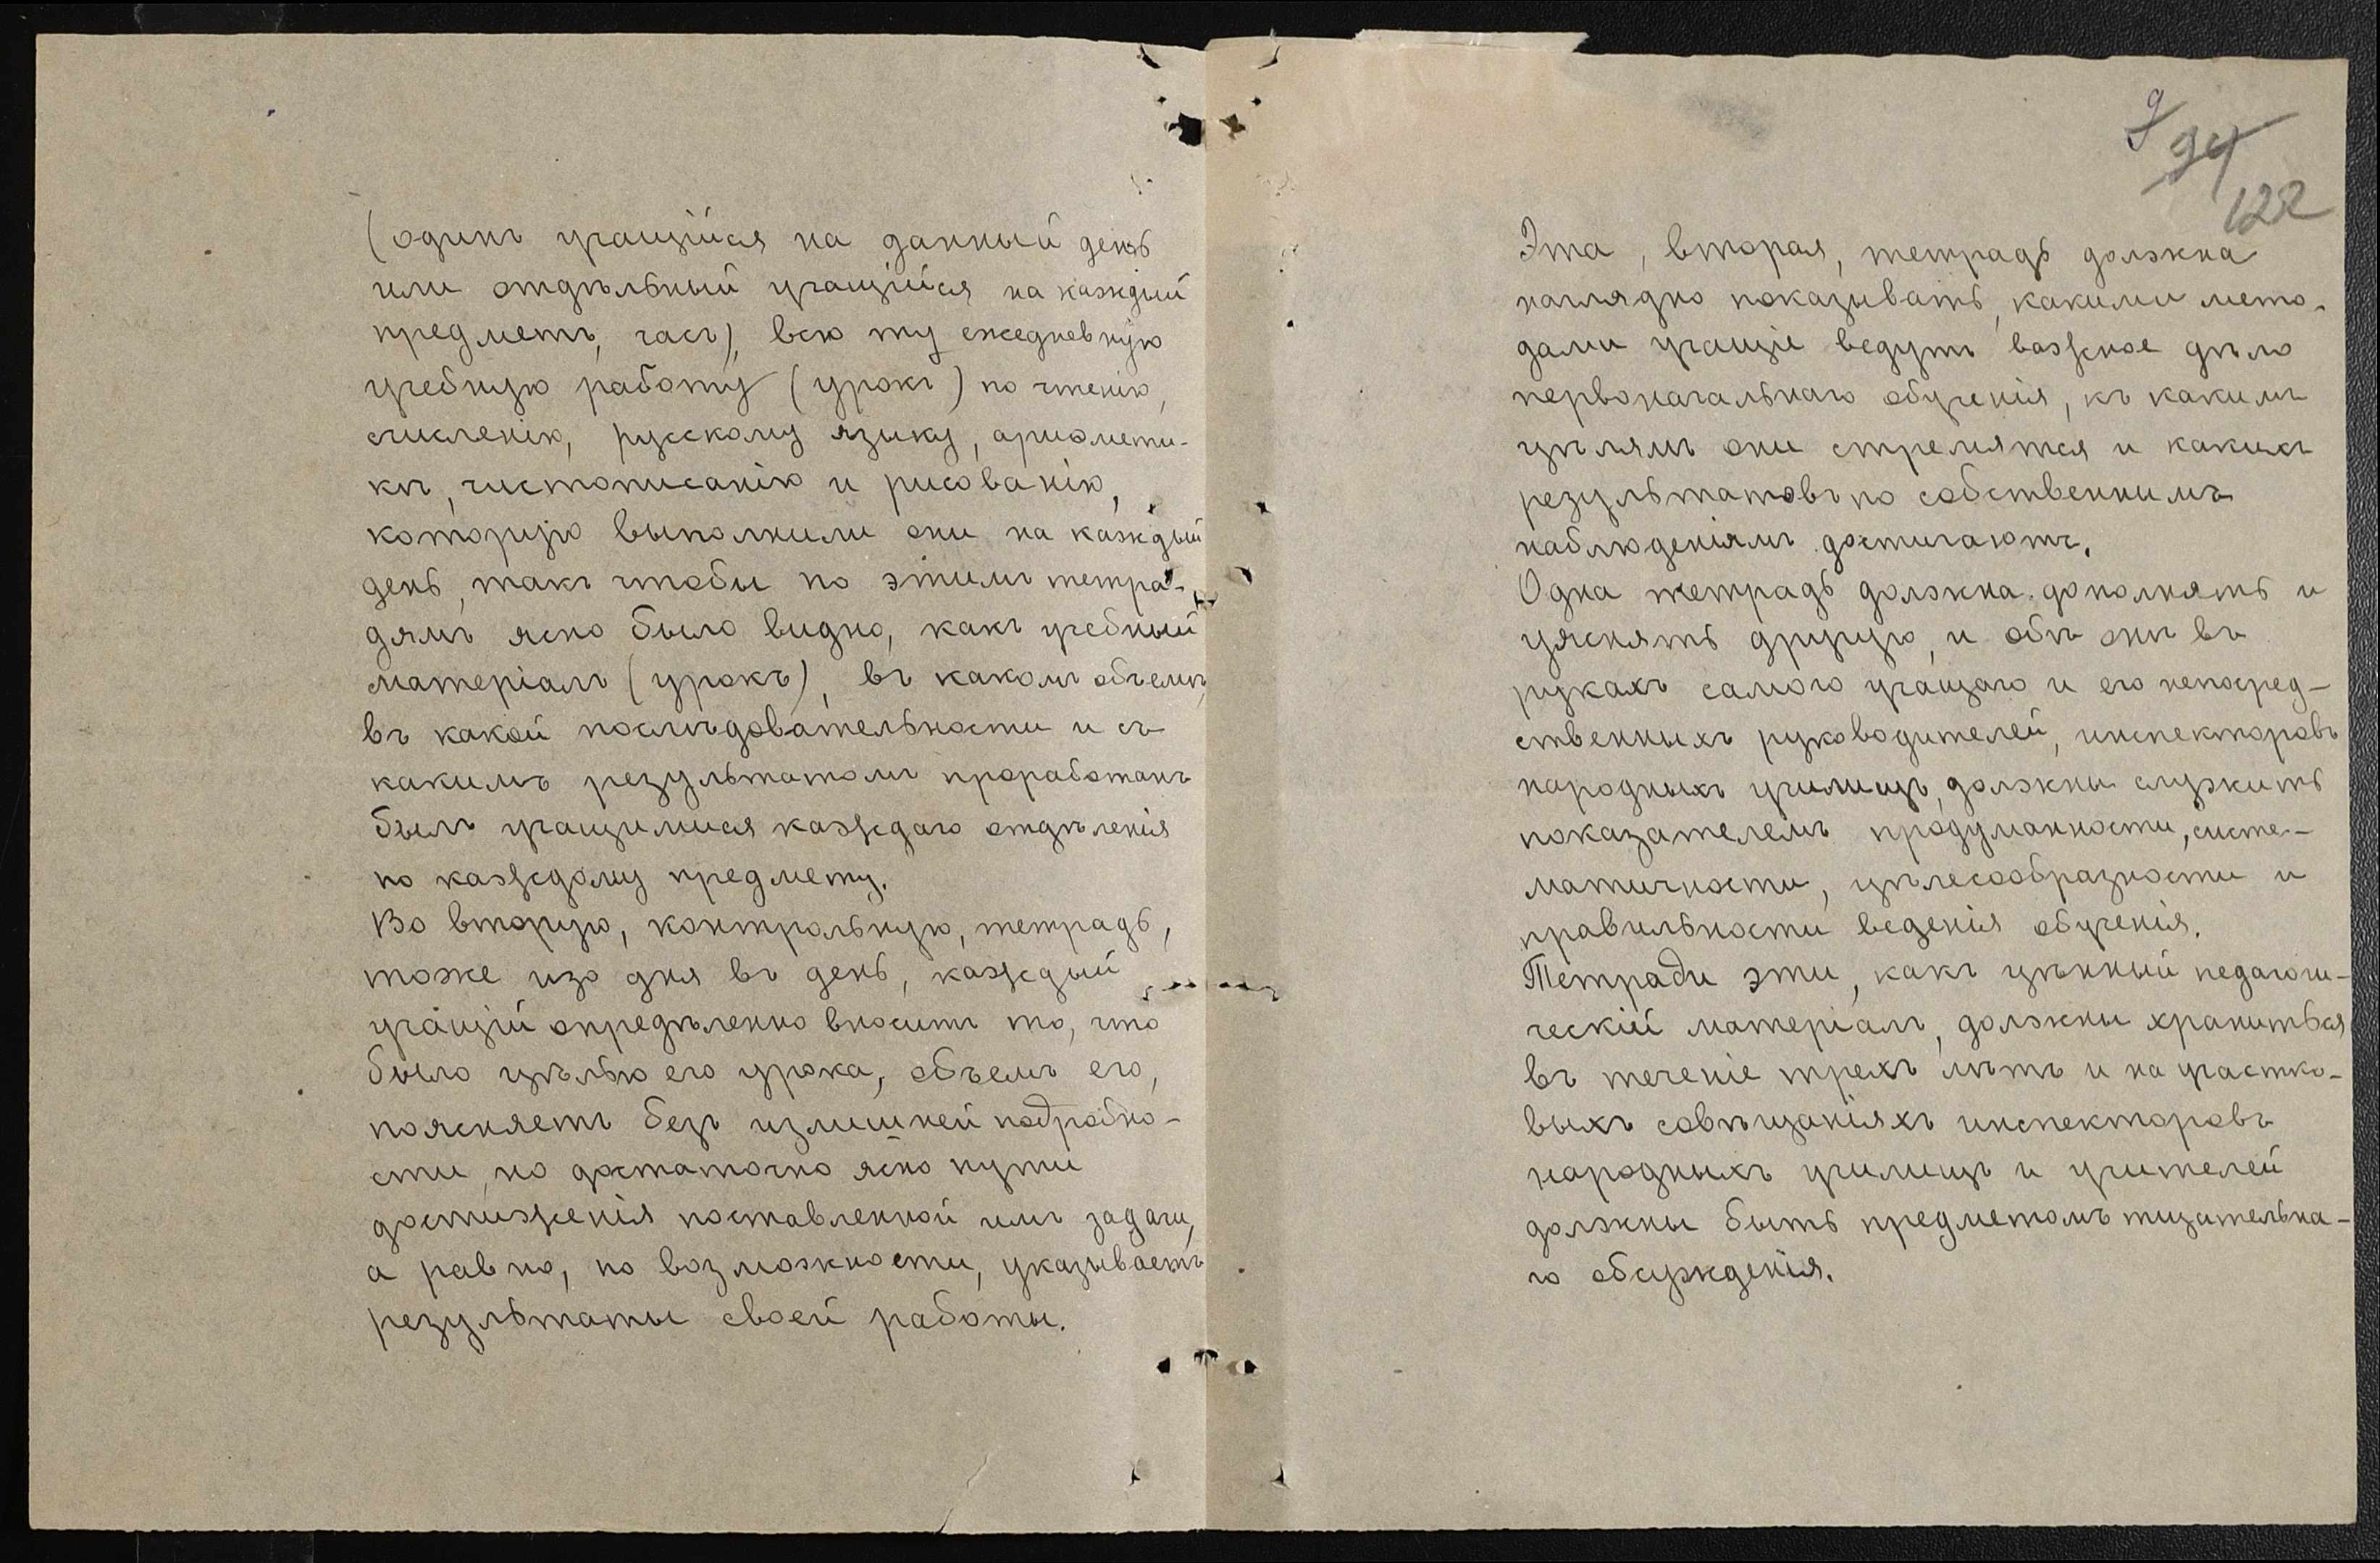 (одинъ учащійся на данный день
или отдѣльный учащійся на каждый
предметъ, часъ), всю ту ежедневную
учебную работу (урокъ) по чтенію,
счисленію, русскому языку, ариѳмети-
кѣ, чистописанію и рисованію,
которую выполнили они на каждый
день, такъ чтобы по этимъ тетра-
дямъ ясно было видно, какъ учебный
матеріалъ (урокъ), въ какомъ объемѣ,
въ какой послѣдовательности и съ
какимъ результатомъ проработанъ
былъ учащимися каждаго отдѣленія
по каждому предмету.
Во вторую, контрольную, тетрадь,
тоже изо дня въ день, каждый
учащій опредѣленно вноситъ то, что
было цѣлью его урока, объемъ его,
поясняетъ безъ излишней подробно-
сти, но достаточно ясно пути
достиженія поставленной имъ задачи,
а равно, по возможности, указываетъ
результаты своей работы.
9
94
122
Эта, вторая, тетрадь должна
наглядно показывать, какими мето-
дами учащіе ведутъ важное дѣло
первоначальнаго обученія, къ какимъ
цѣлямъ они стремятся и какихъ
результатовъ по собственнымъ
наблюденіямъ достигаютъ.
Одна тетрадь должна дополнять и
уяснять другую, и обѣ онѣ въ
рукахъ самого учащаго и его непосред-
ственныхъ руководителей, инспекторовъ
народныхъ училищъ, должны служить
показателемъ продуманности, систе-
матичности, цѣлесообразности и
правильности веденія обученія.
Тетради эти, какъ цѣнный педагоги-
ческій матеріалъ, должны храниться
въ теченіе трехъ лѣтъ и на участко-
выхъ совѣщаніяхъ инспекторовъ
народныхъ училищъ и учителей
должны быть предметомъ тщательна-
го обсужденія.